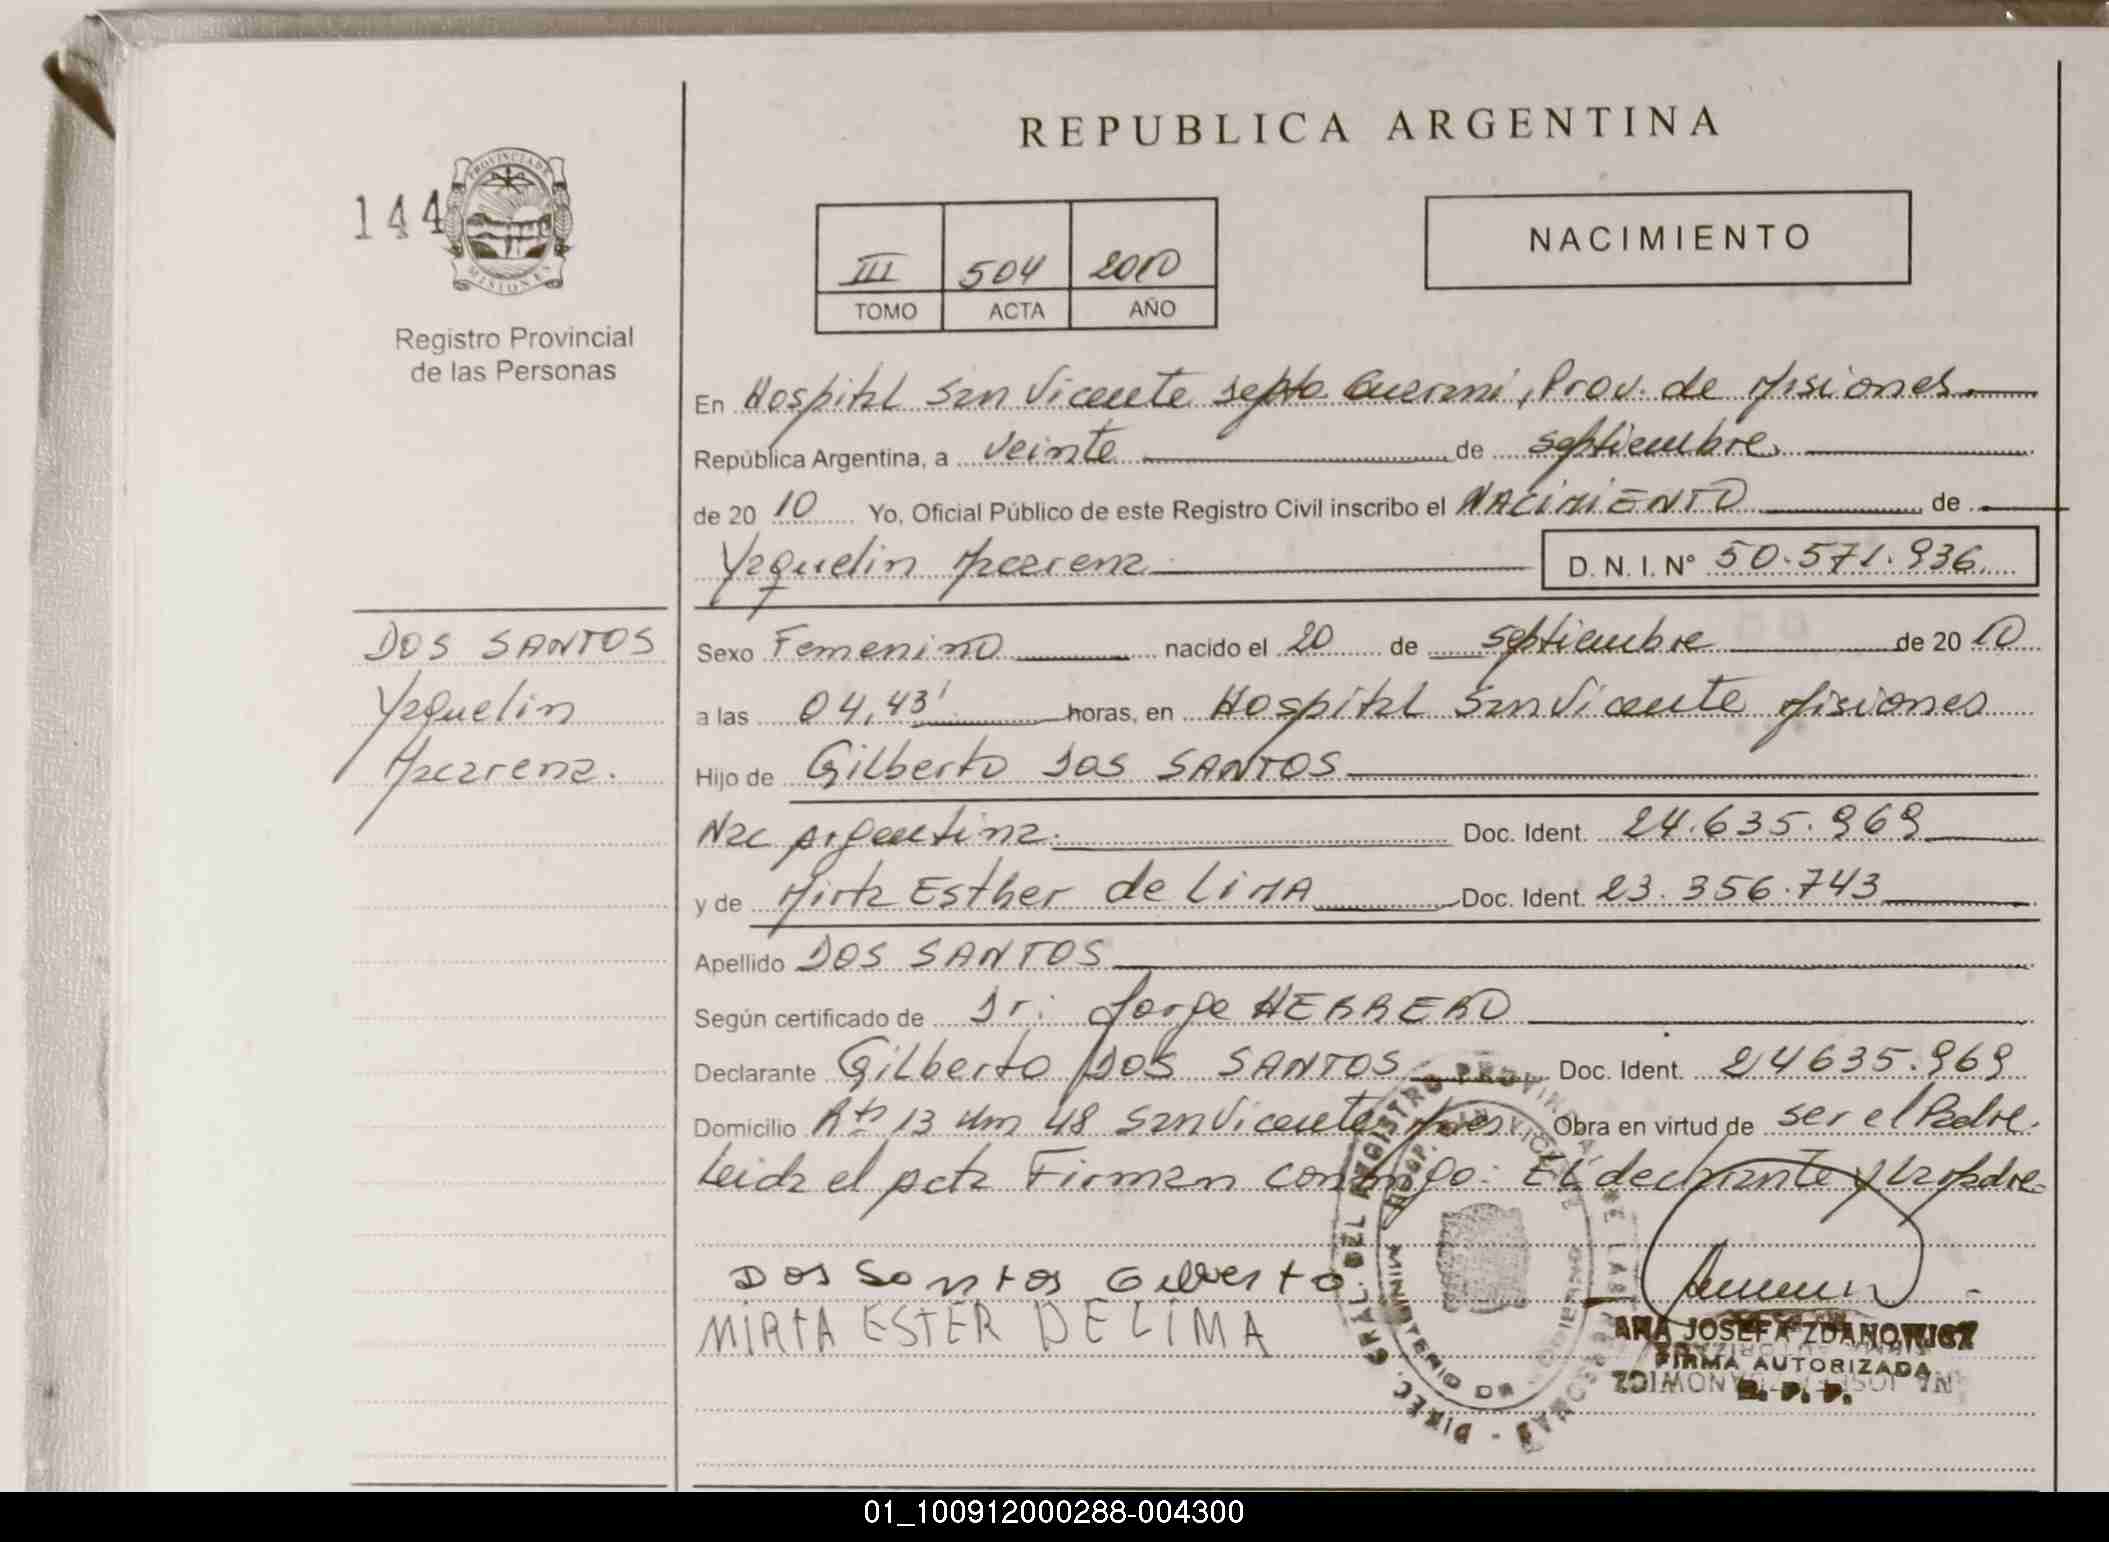 REPUBLICA ARGENTINA
144
PROVINCIA DE
MISIONES
Registro Provincial
de las Personas
III 504 2010
TOMO ACTA AÑO
NACIMIENTO
En Hospital San Vicente Depto Guarani, Prov. de Misiones
República Argentina, a veinte de septiembre
de 20 10 Yo, Oficial Público de este Registro Civil inscribo el NACIMIENTO de
Yaquelin Macarena D. N. I. N° 50.571.936
DOS SANTOS
Yaquelin
Macarena.
Sexo Femenino nacido el 20 de septiembre de 20 10
a las 04,43' horas, en Hospital San Vicente Misiones
Hijo de Gilberto DOS SANTOS
Nac Argentina. Doc. Ident. 24.635.969
y de Mirta Esther de LIMA Doc. Ident. 23.356.743
Apellido DOS SANTOS
Según certificado de Dr. Jorge HERRERO
Declarante Gilberto DOS SANTOS Doc. Ident. 24635.969
Domicilio Rta 13 Km 48 San Vicente Mnes. Obra en virtud de ser el Padre.
Leida el Acta Firman conmigo: El declarante y la Madre
Dos Santos Gilberto
MIRTA ESTER DE LIMA
DIREC. GRAL. DEL REGISTRO PROVINCIAL DE LAS PERSONAS
MINISTERIO DE GOBIERNO
ANA JOSEFA ZDANOWICZ
FIRMA AUTORIZADA
R. P. P.
01_100912000288-004300